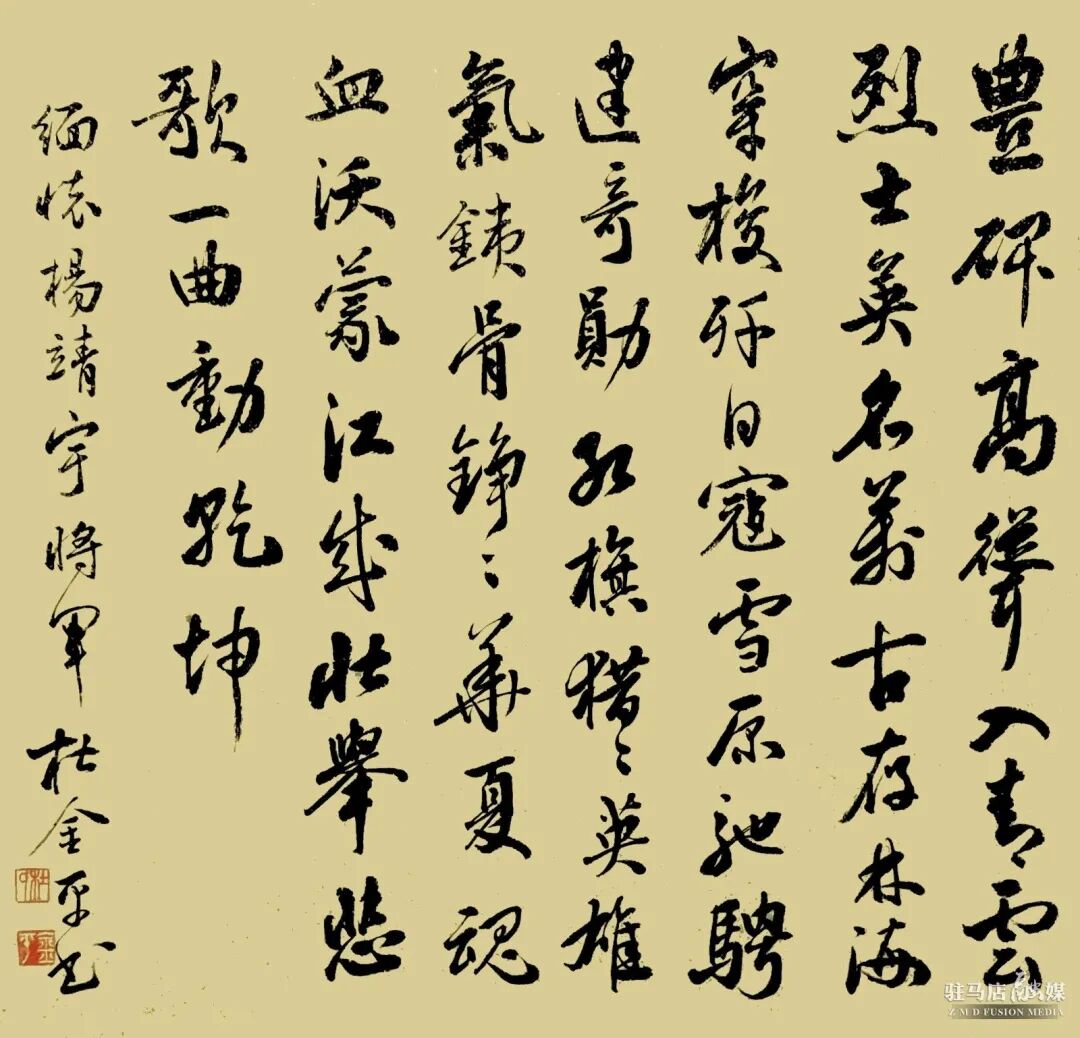 豊碑高聳入青雲
烈士英名萬古存林海
穿梭歼日寇雪原馳騁
建奇勛紅旗猎〻英雄
氣銕骨錚〻華夏魂
血沃蒙江成壯舉悲
歌一曲動乾坤
缅懷楊靖宇將軍 杜金平书
驻马店融媒
ZMD FUSION MEDIA